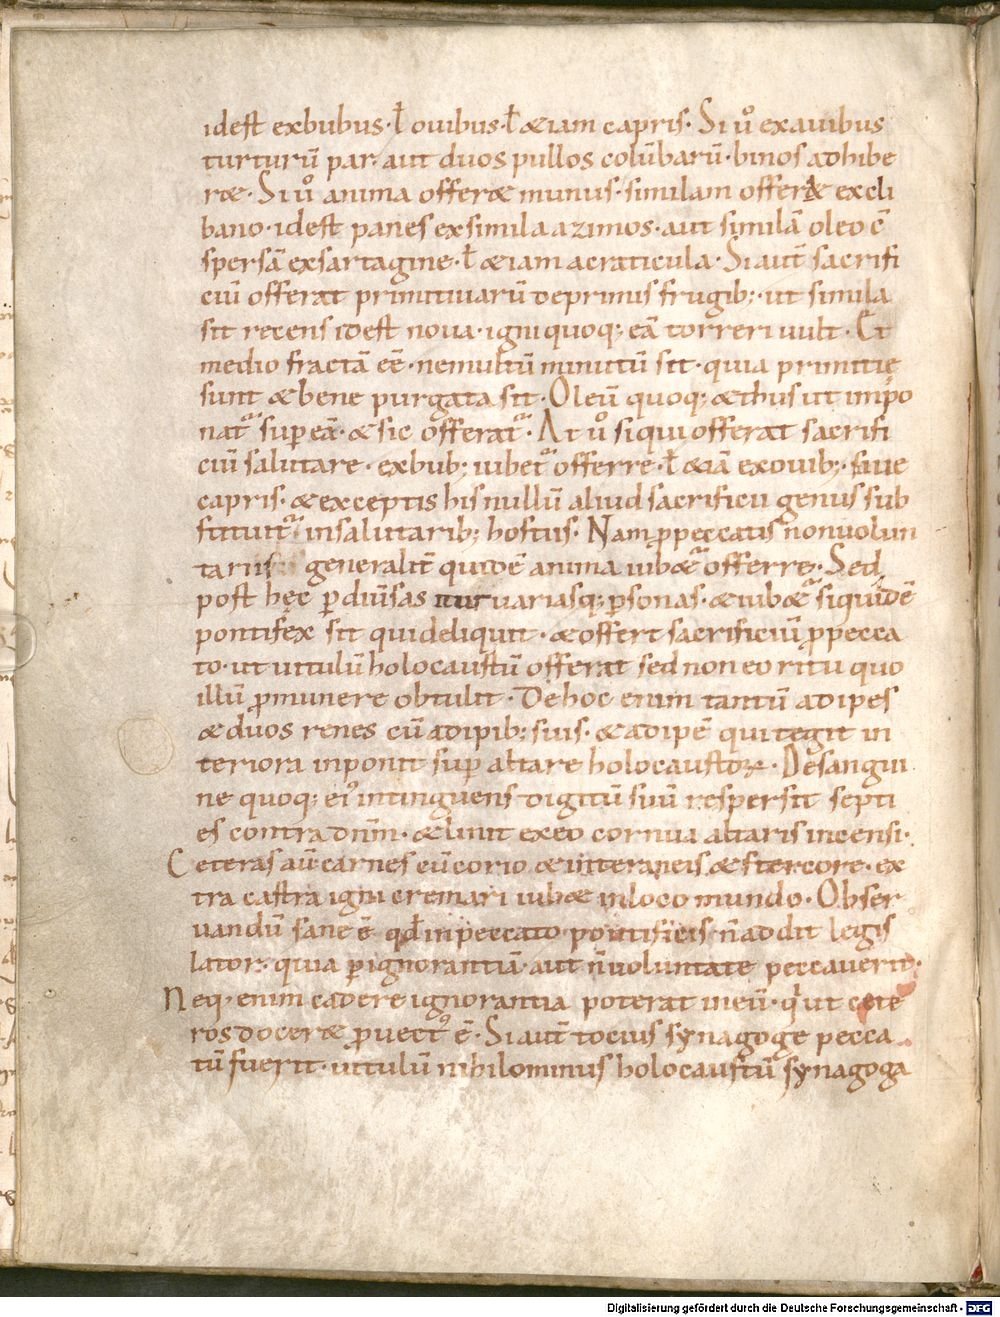 idest exbubus· ł ouibus· ł &iam capris· Si uͦ exauibus
turturū par· aut duos pullos colūbarū· binos adhibe
r&· Si uͦ anima offer& munus· similam offer& excli
bano· idest panes exsimila azimos· aut similā oleo c̄
spersā exsartagine· ł &iam acraticula· Si aut̄ sacrifi
ciū offerat primitiuarū deprimis frugib;· ut simila
sit recens idest noua· igni quoq; eā torreri uult· Et
medio fractā eē· nemultū minutū sit· quia primitię
sunt &bene purgata sit· Oleū quoq; &thus ut inpo
nat᷑ sup eā· & sic offerat᷑· At uͦ siqui offerat sacrifi
ciū salutare· exbub; iubet᷑ offerre· ł &iā exouib;· siue
capris· &exceptis his nullū aliud sacrificii genus sub
stituit᷑ insalutarib; hostiis· Nam ꝓpeccatis nonuolun
tariis generalit̄ quidē anima iub&᷑ offerre· Sed
post hęc ꝑ diuisas uariasq; ꝑsonas· &iub&᷑ siquidē
pontifex sit qui deliquit· & offert sacrificiū ꝓpecca
to· ut uitulū holocaustū offerat sed non eo ritu quo
illū ꝓmunere obtulit· De hoc enim tantū adipes
& duos renes cū adipib; suis· & adipē qui tegit in
teriora inponit sup altare holocaustoꝝ· De sangui
ne quoq; ei᾿ intinguens digitū suū respersit septi
es contra dn̄m· & linit ex eo cornua altaris incensi·
Ceteras aū carnes cū corio & interaneis & stercore· ex
tra castra igni cremari iub& inloco mundo· Obser
uandū sane ē qđ inpeccato pontificis n̄ addit legis
lator· quia ꝑignorantiā· aut n̄uoluntate peccauerit·
Neq; enim cadere ignorantia poterat in eū· qͥ ut cete
ros docer& ꝓuect᾿ ē· Si aut̄ tocius synagoge pecca
tū fuerit· uitulū nihilominus holocaustū synagoga
Digitalisierung gefördert durch die Deutsche Forschungsgemeinschaft - DFG